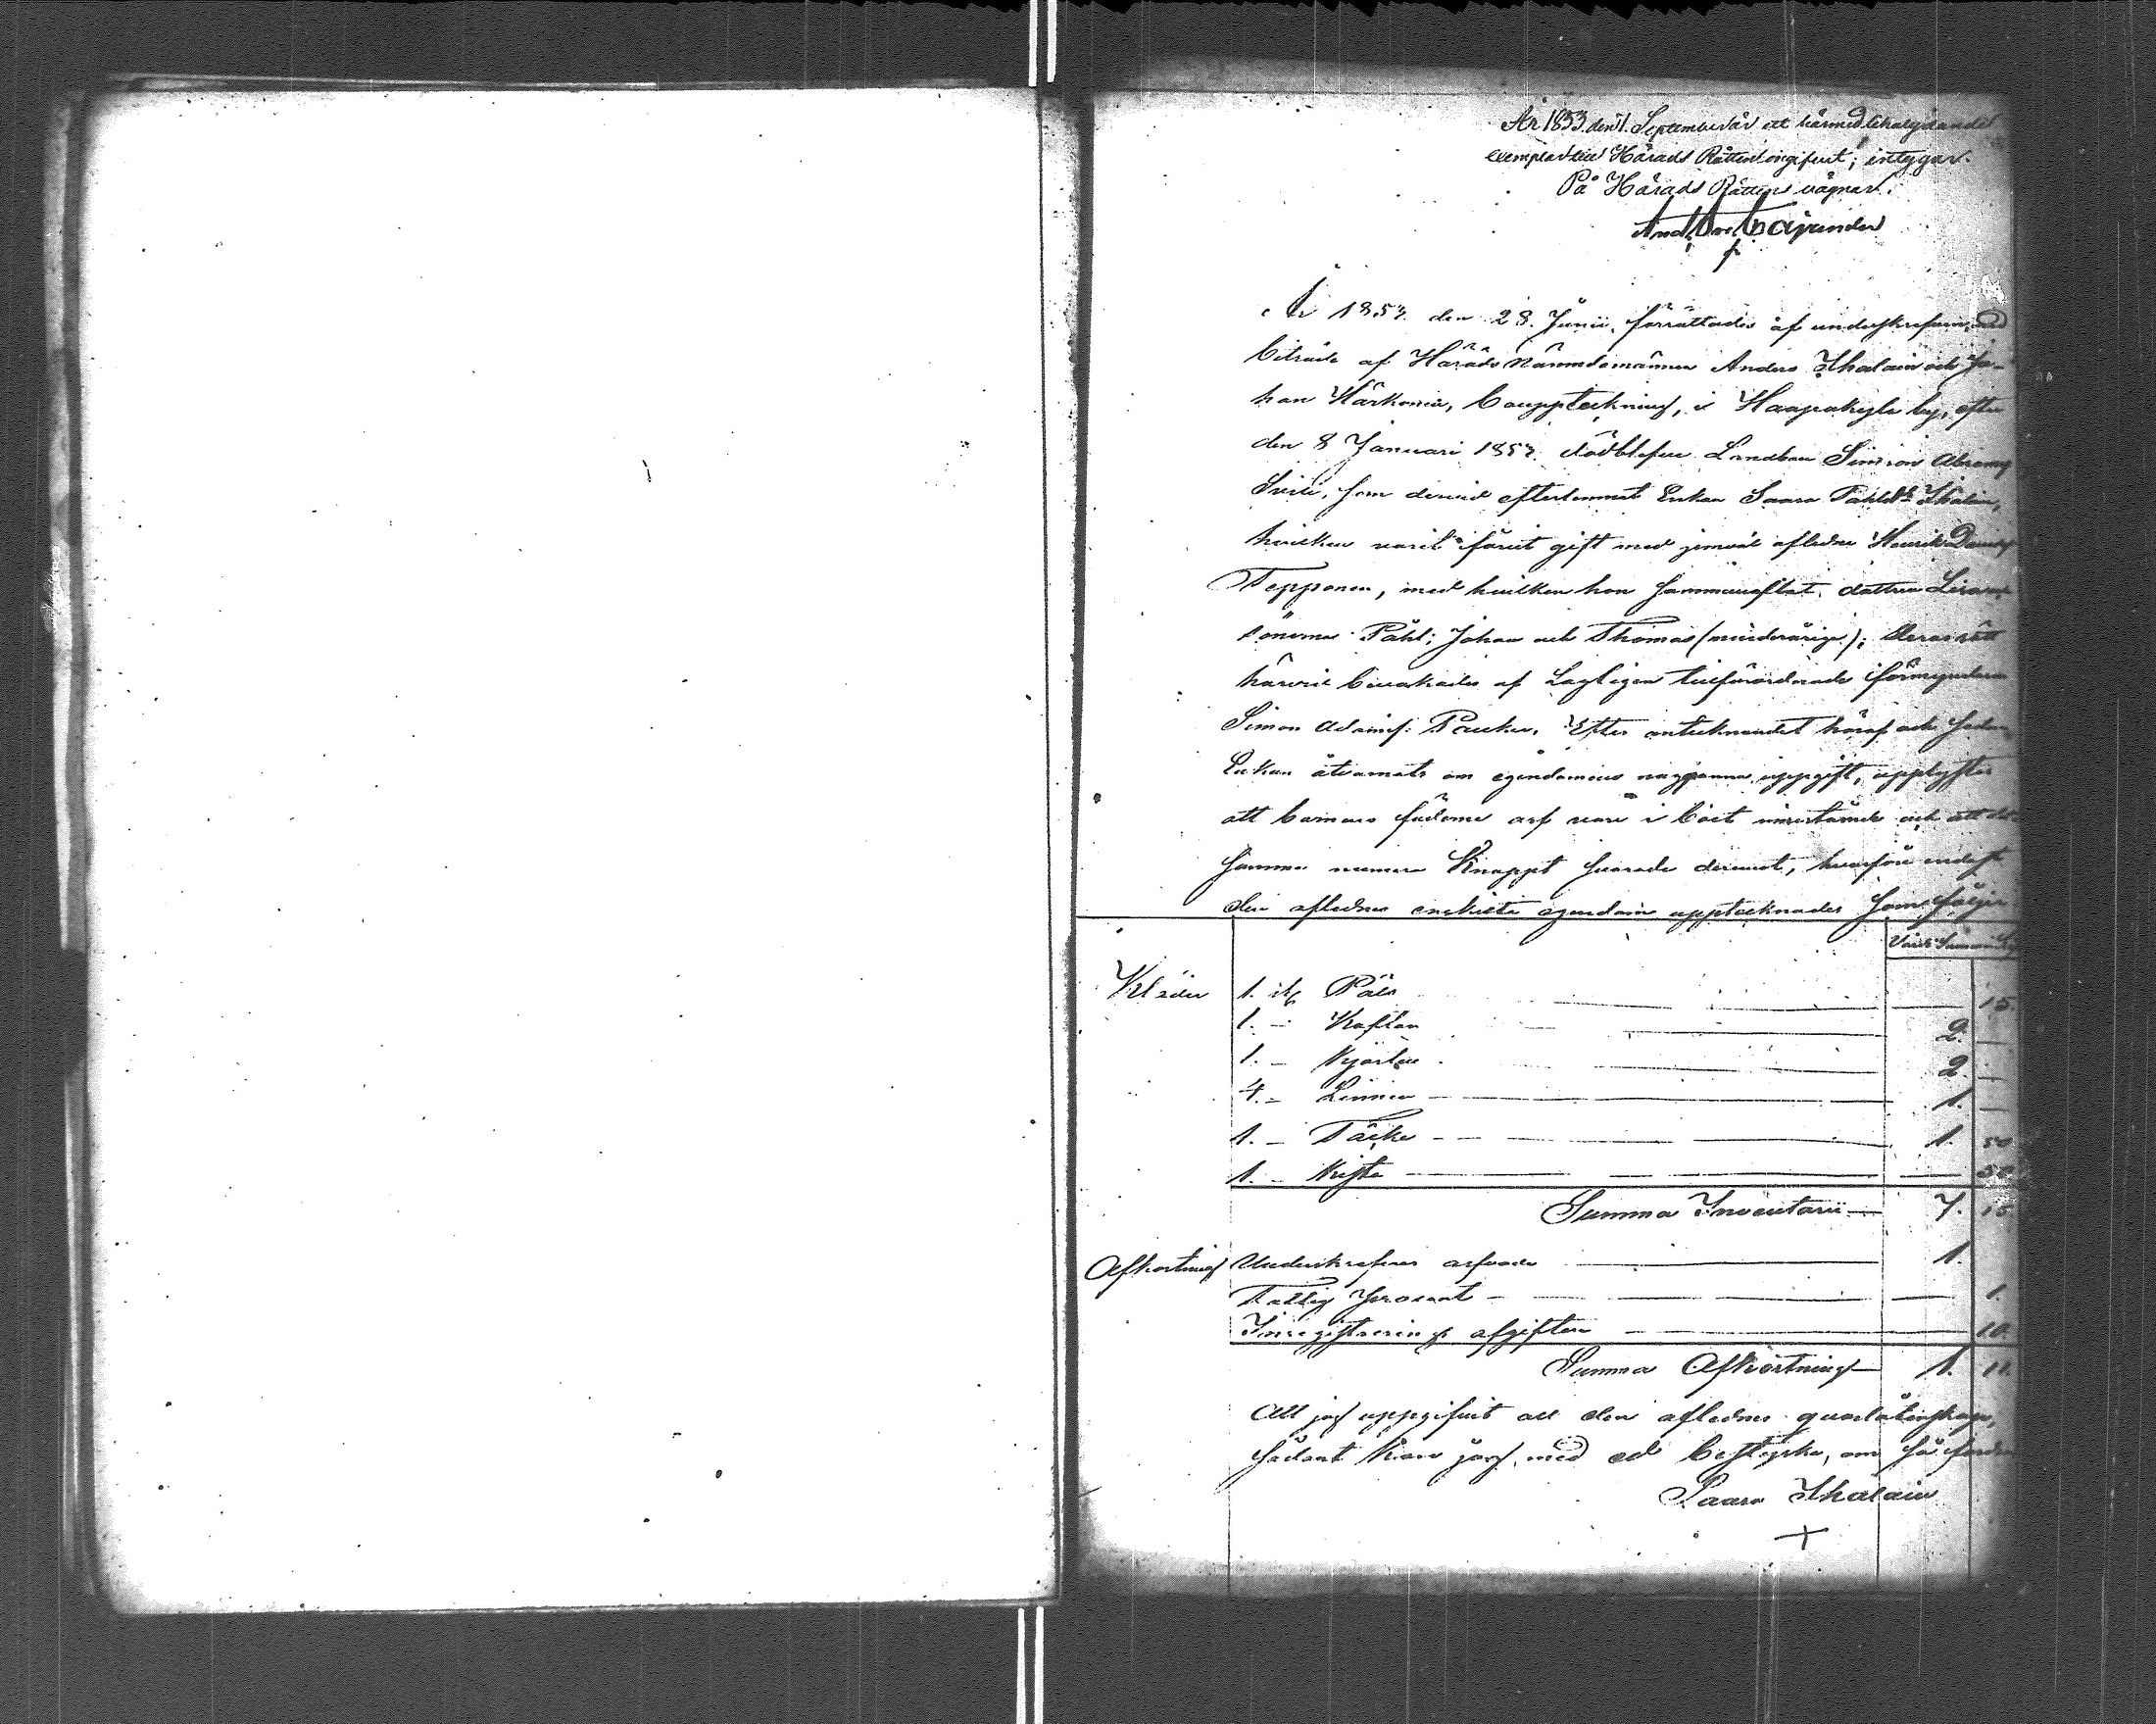 År 1853. den 1. September är ett härmed likalydande
exemplar till Härads Rätten ingifvit; intygar.
På Härads Rättens vägnar.
År 1853. den 28. Junii, förrättades af undertecknad, med
biträde af Härads Nämndemännen Anders Ihalain och Jo-
han Härkönen, bouppteckning, i Haapakylä by, efter
den 8 Januari 1853. dödblefne Landbon Simon Abramsf
som dervid efterlemnat Enkan Saara Påhlsdr Ihalain,
hvilken varit förut gift med jemväl aflidne Henrik
Tepponen, med hvilken hon sammanaflat dottren Lisa
sönerna Påhl; Johan och Thomas (minderårige); deras rätt
härvid bevakades af Lagligen tillförordnade förmyndaren
Simon Adamsf: Efter antecknandet häraf och sedan
Enkan åtvarnats om egendomens noggranna uppgift, upplystes
att barnens fäderne arf vore i boet innestående och att det
samma numera knappt svarade deremot, hvarföre endast
den aflidnes enskilta egendom upptecknades som följer
Kläder 1. st. Päls 15.
1. – Kaftan 2. –
1. – Kjortel 2. –
4. – Linnen 1. –
1. – Täcke 1. 50
1. – Kista 50
Summa Inventarii 7. 15
Afkortning Underskrefvens arfvode 1.
Fattig procent 1.
Inregistrerings afgiften 10.
Summa Afkortning 1. 11.
Att jag uppgifvit all den aflidnes qvarlåtenskap,
sådant kan jag med ed bestyrka, om så fordras
Saara Ihalain
+